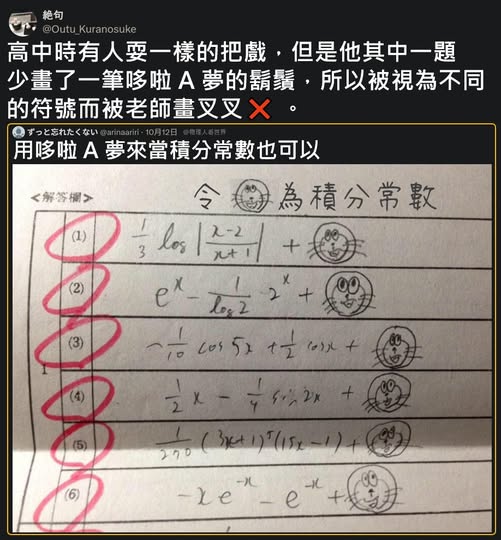 絕句
@Outu_Kuranosuke
高中時有人耍一樣的把戲，但是他其中一題
少畫了一筆哆啦 A 夢的鬍鬚，所以被視為不同
的符號而被老師畫叉叉❌ 。
ずっと忘れたくない @arinaariri · 10月12日 @物理人看世界
用哆啦 A 夢來當積分常數也可以
<解答欄>
令 為積分常數
(1) 1/3 log |x-2/x+1| +
(2) e^x - 1/log2 · 2^x +
(3) -1/10 cos 5x + 1/2 cos x +
(4) 1/2 x - 1/4 sin 2x +
(5) 1/270 (3x+1)^5 (15x-1) +
(6) -x e^-x - e^-x +